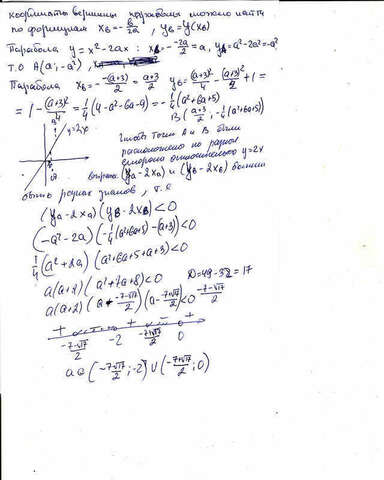 координаты вершины параболы можно найти
по формулам x_B = -b/2a, y_B = y(x_B)
Парабола y = x² - 2ax : x_A = -(-2a)/2 = a, y_A = a² - 2a² = -a²
т.о A(a; -a²),
Парабола x_B = -(-(a+3))/2 = (a+3)/2 y_B = (a+3)²/4 - (a+3)²/2 + 1 =
= 1 - (a+3)²/4 = 1/4(4 - a² - 6a - 9) = -1/4(a² + 6a + 5)
B((a+3)/2; -1/4(a² + 6a + 5))
y = 2x
чтобы точки A и B были
расположены по разные
стороны относительно y = 2x
(y_A - 2x_A) и (y_B - 2x_B) должны
быть разных знаков, т.е
(y_A - 2x_A)(y_B - 2x_B) < 0
(-a² - 2a)(-1/4(a² + 6a + 5) - (a+3)) < 0
1/4(a² + 2a)(a² + 6a + 5 + a + 3) < 0
a(a+2)(a² + 7a + 8) < 0 D = 49 - 32 = 17
a(a+2)(a - (-7-√17)/2)(a - (-7+√17)/2) < 0 (-7-√17)/2
+ - + - +
(-7-√17)/2 -2 (-7+√17)/2 0
a ∈ ((-7-√17)/2; -2) ∪ ((-7+√17)/2; 0)